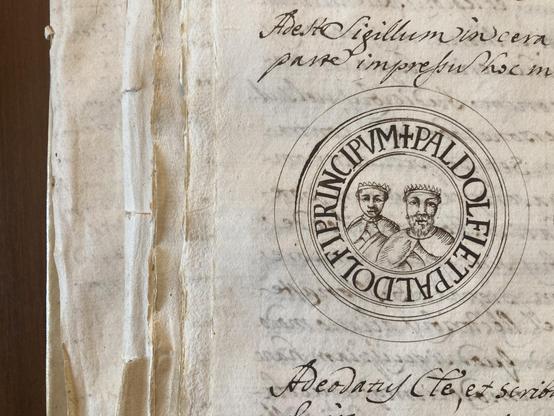 Adest Sigillum in cera
parte impressū hoc m
✝PALDOLFI ET PALDOLFI PRINCIPVM
Adeodatus Cle, et scrib